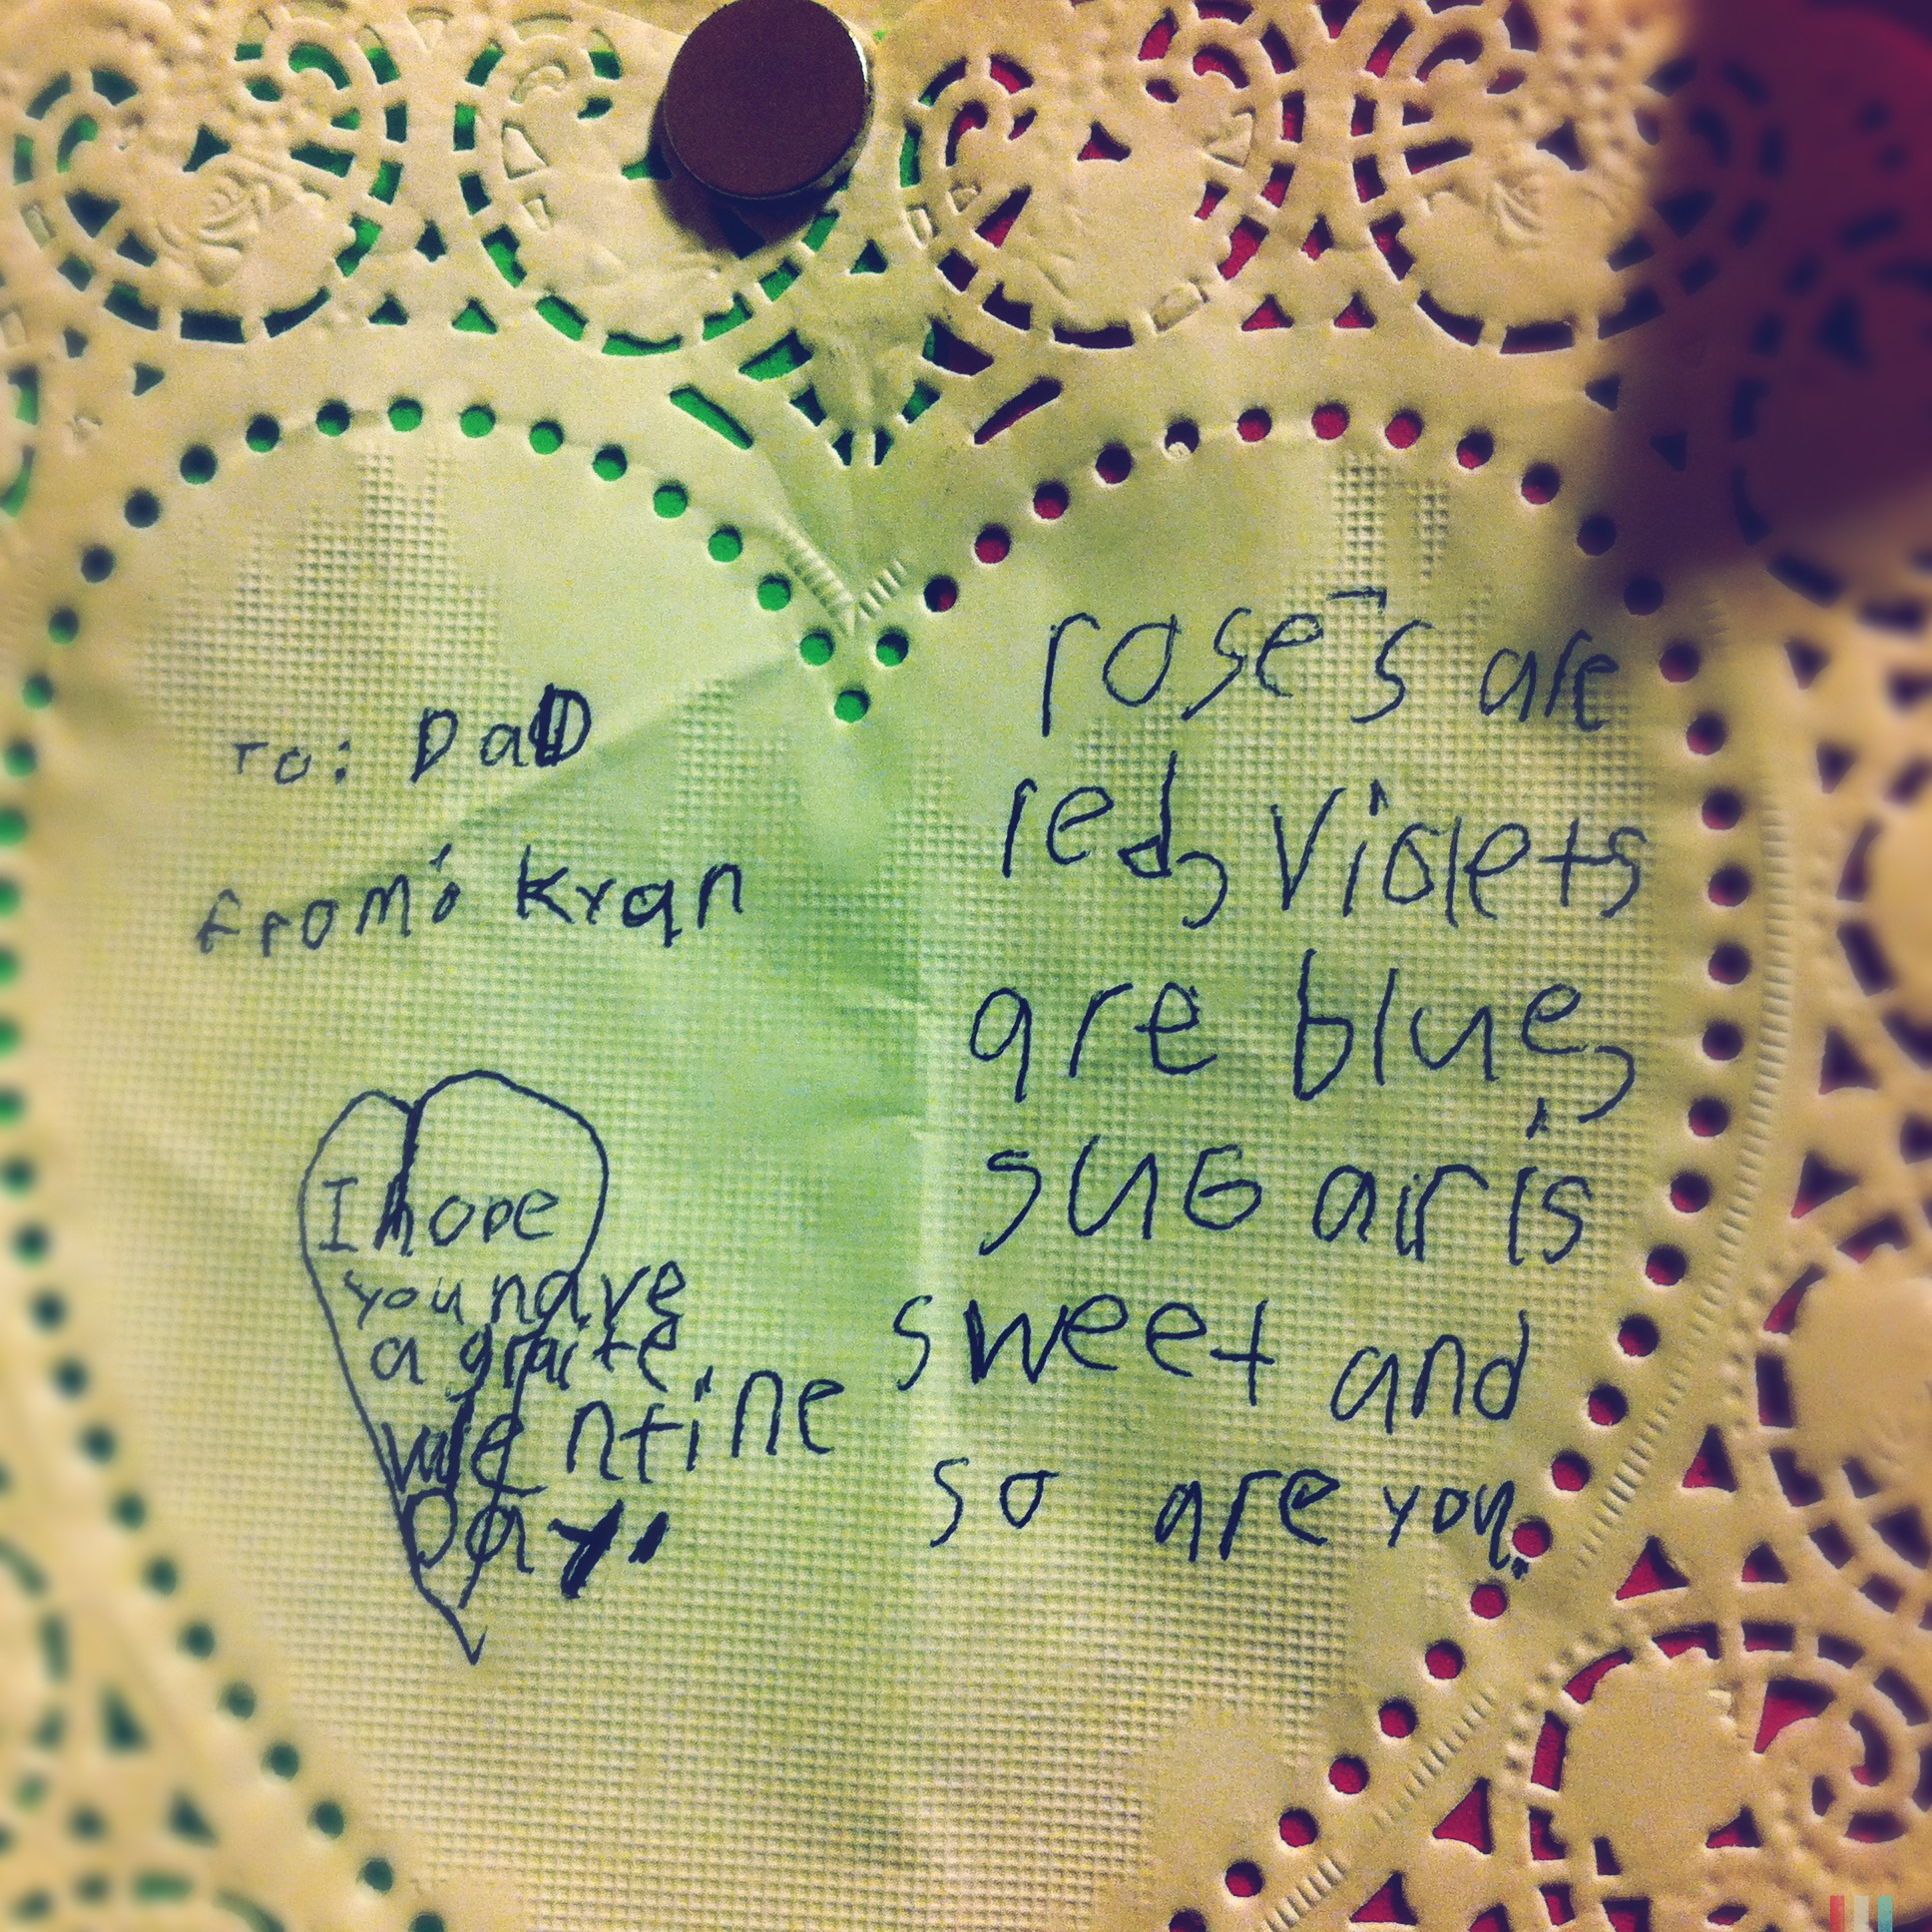 To: DaD
from: kyan
I hope
you have
a graite
valentine
Day.
rose's are
red, violets
are blue,
suGair is
sweet and
so are you.